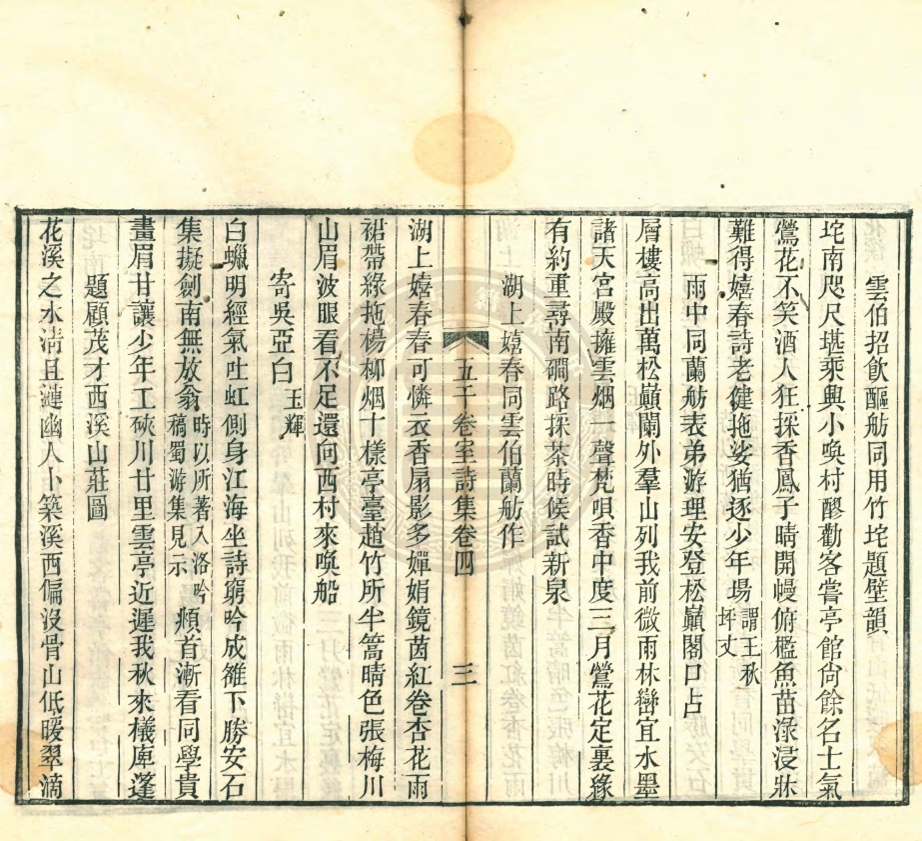 雲伯招飲醧舫同用竹垞題壁韻
垞南咫尺堪乘興小喚村醪勸客嘗亭館尙餘名士氣
鶯花不笑酒人狂採香鳳子晴開幔俯檻魚苗淥浸牀
難得嬉春詩老健拖筇猶逐少年場謂王秋坪丈
雨中同蘭舫表弟游理安登松巔閣口占
層樓高出萬松巔闌外羣山列我前微雨林巒宜水墨
諸天宮殿擁雲烟一聲梵唄香中度三月鶯花定裏緣
有約重尋南磵路採茶時候試新泉
湖上嬉春同雲伯蘭舫作
五千卷室詩集卷四 三
湖上嬉春春可憐衣香扇影多嬋娟鏡茵紅卷杏花雨
裙帶綠拖楊柳烟十樣亭臺趙竹所半篙晴色張梅川
山眉波眼看不足還向西村來喚船
寄吳亞白玉輝
白蠟明經氣吐虹側身江海坐詩窮吟成雒下勝安石
集擬劍南無放翁時以所著入洛吟稿蜀游集見示頫首漸看同學貴
畫眉甘讓少年工硤川廿里雲亭近遲我秋來檥庳篷
題顧茂才西溪山莊圖
花溪之水淸且漣幽人卜築溪西偏沒骨山低暖翠滴